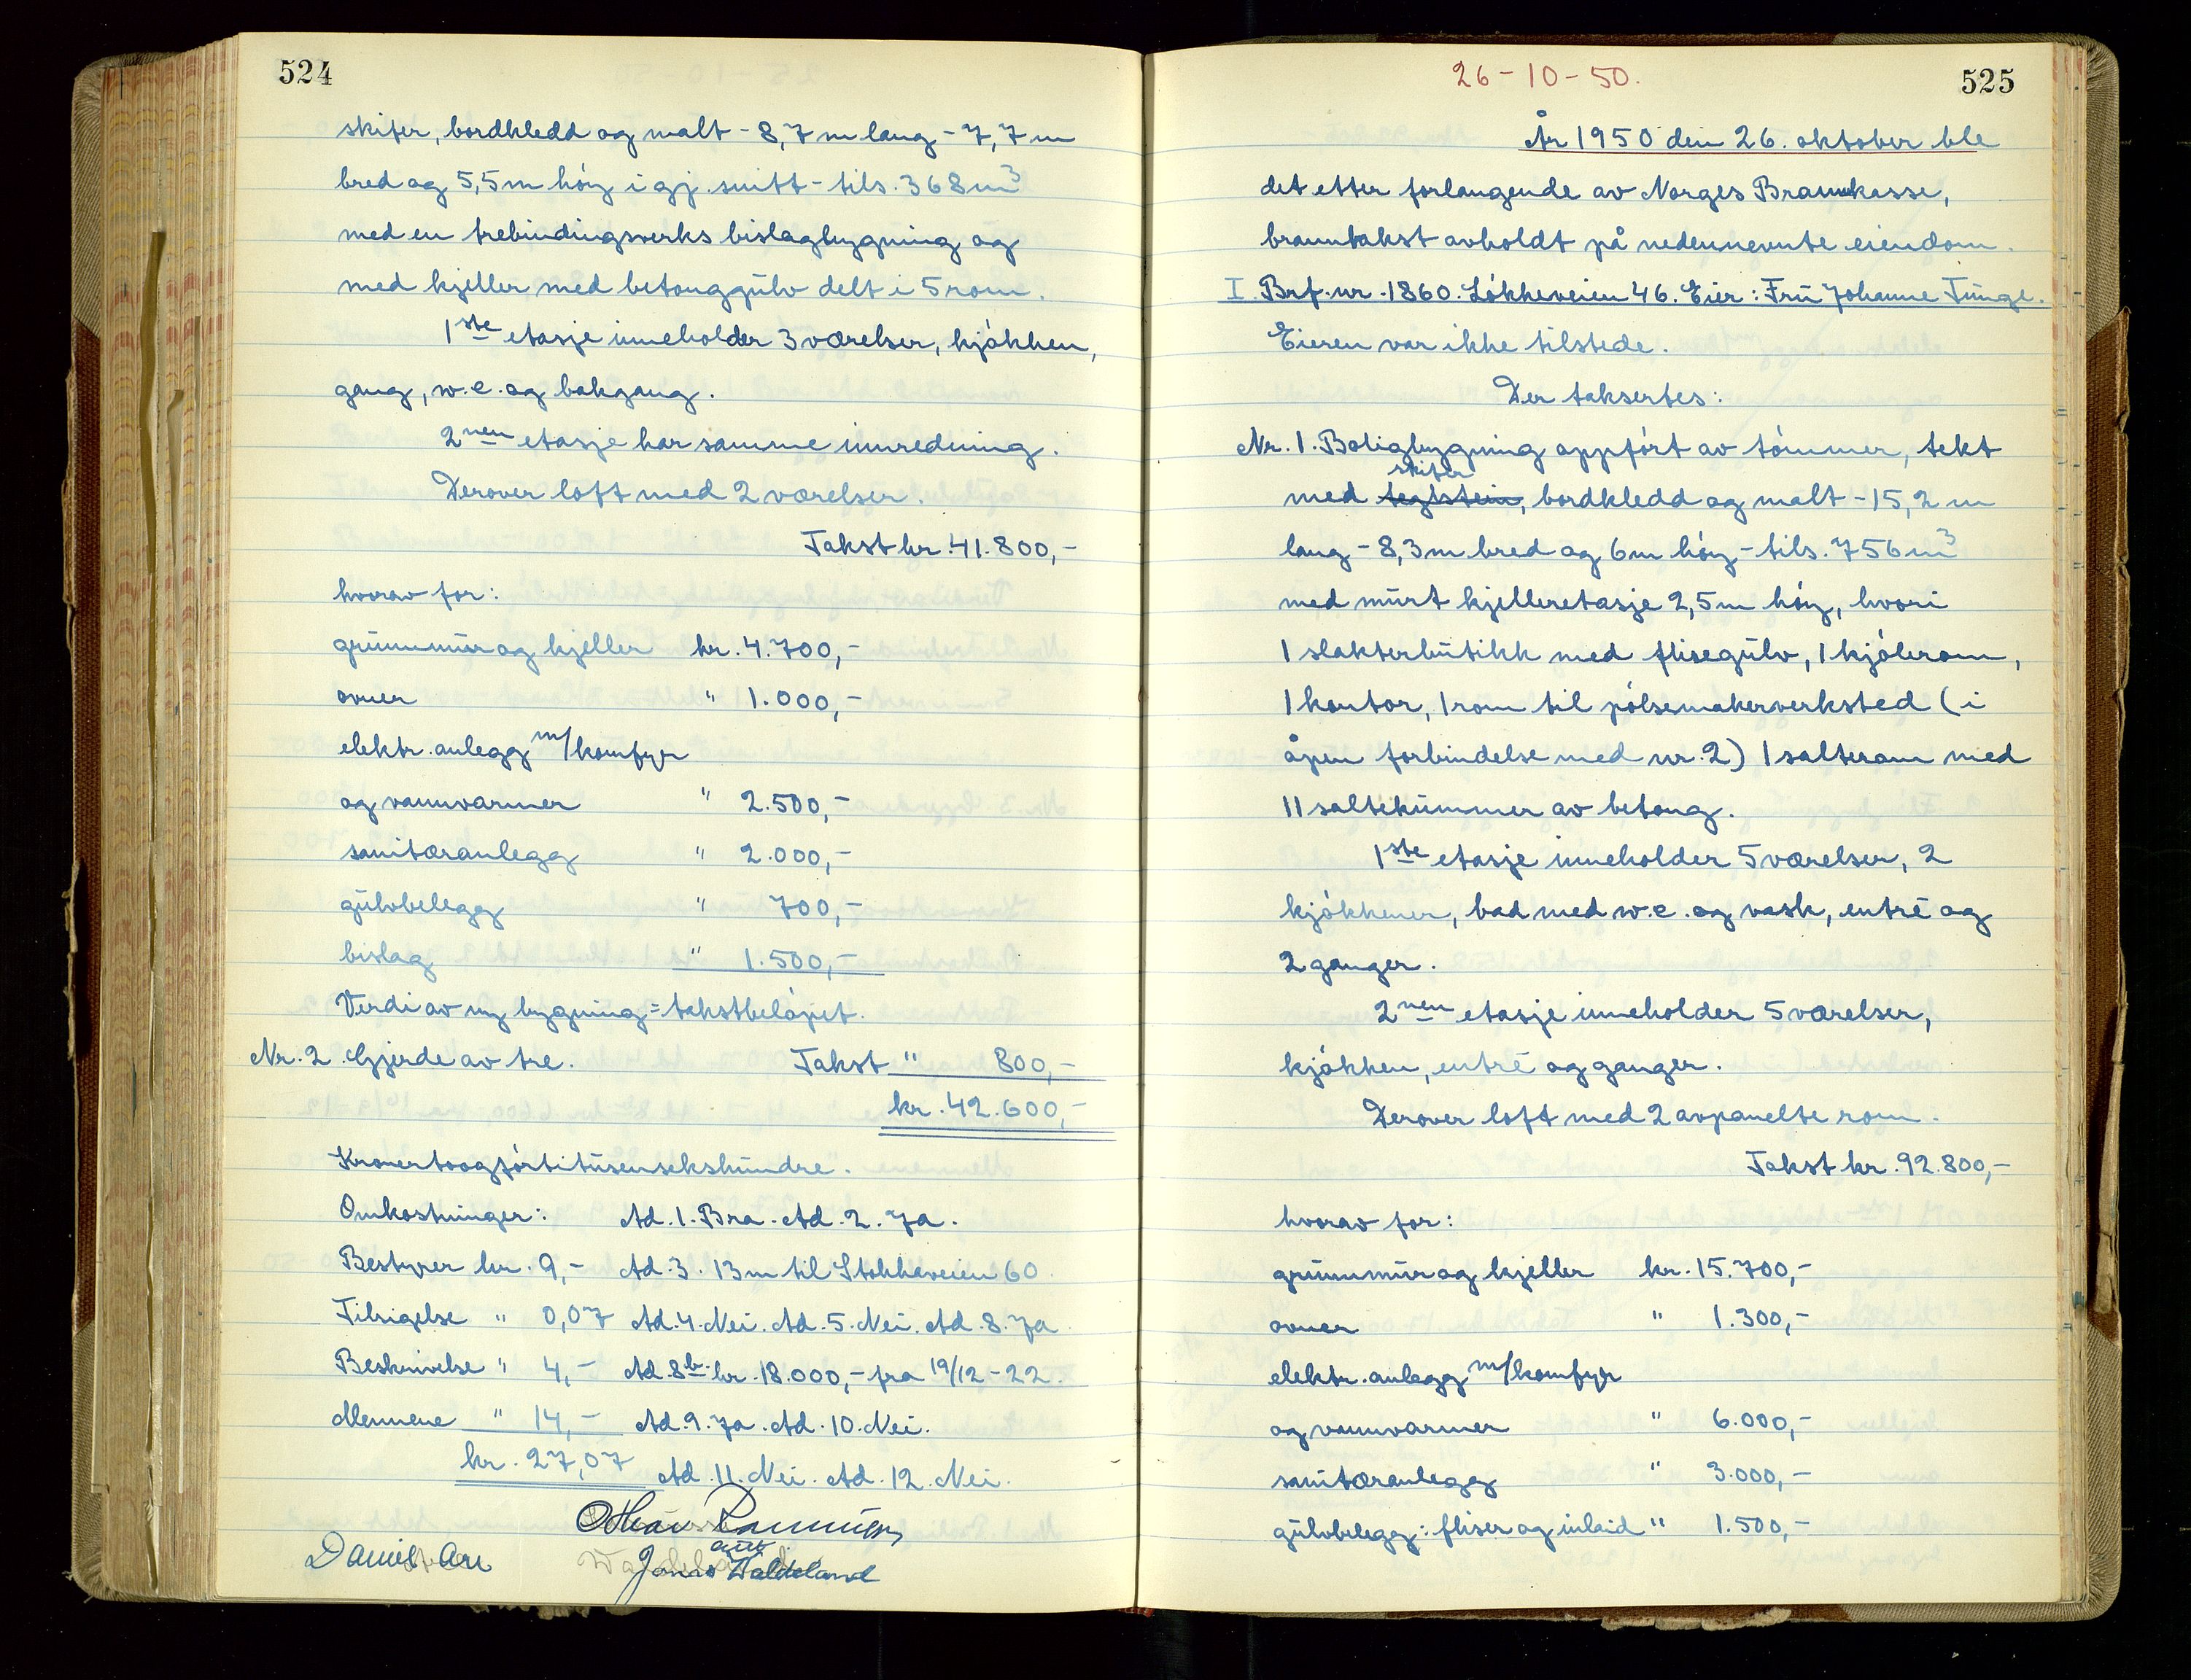 524
skifer, bordkledd og malt - 8,7 m lang - 7,7 m
bred og 5,5 m høy i gj. snitt - tils. 368 m³
med en trebindingsverks bislagbygning og
med kjeller med betonggulv delt i 5 rom.
1ste etasje inneholder 3 værelser, kjøkken,
gang, w.c. og bakgang.
2nen etasje har samme innredning.
Derover loft med 2 værelser.
Takst kr. 41.800,-
hvorav for:
grunnmur og kjeller kr. 4.700,-
ovner " 1.000,-
elektr. anlegg m/komfyr
og vannvarmer " 2.500,-
sanitæranlegg " 2.000,-
gulvbelegg " 700,-
bislag " 1.500,-
Verdi av ny bygning = takstbeløpet.
Nr. 2. Gjerde av tre. Takst " 800,-
kr. 42.600,-
Kronertoogførtitusensekshundre.
Omkostninger: Ad. 1. Bra. Ad. 2. Ja.
Bestyrer kr. 9,- Ad. 3. 13 m til Stokkaveien 60.
Tilsigelse " 0,07 Ad. 4. Nei. Ad. 5. Nei. Ad. 8. Ja
Beskrivelse " 4,- Ad. 8b. kr. 18.000,- fra 19/12-22.
Mennene " 14,- Ad. 9. Ja. Ad. 10. Nei.
kr. 27,07 Ad. 11. Nei. Ad. 12. Nei.
Daniel
Jonas Waldeland
26-10-50.
525
År 1950 den 26. oktober ble
det etter forlangende av Norges Brannkasse,
branntakst avholdt på nedennevnte eiendom.
I. Brf. nr. 1860. Løkkeveien 46. Eier: Fru Johanne Tunge.
Eieren var ikke tilstede.
Der taksertes:
Nr. 1. Boligbygning oppført av tømmer, tekt
skifer
med teglstein, bordkledd og malt - 15,2 m
lang - 8,3 m bred og 6 m høy - tils. 756 m³
med murt kjelleretasje 2,5 m høy, hvori
1 slakterbutikk med flisegulv, 1 kjølerom,
1 kontor, 1 rom til pølsemakerverksted (i
åpen forbindelse med nr. 2) 1 salterom med
11 saltekummer av betong.
1ste etasje inneholder 5 værelser, 2
kjøkkener, bad med w.c. og vask, entré og
2 ganger.
2nen etasje inneholder 5 værelser,
kjøkken, entré og ganger.
Derover loft med 2 avpanelte rom.
Takst kr. 92.800,-
hvorav for:
grunnmur og kjeller kr. 15.700,-
ovner " 1.300,-
elektr. anlegg m/komfyr
og vannvarmer " 6.000,-
sanitæranlegg " 3.000,-
gulvbelegg: fliser og inlaid " 1.500,-